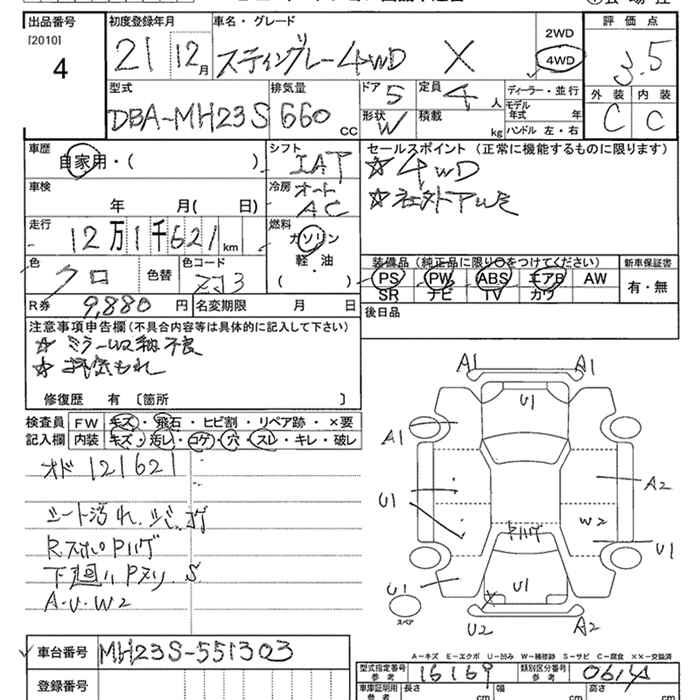 出品番号
[2010]
4
初度登録年月
21 12月
車名・グレード
スティングレー 4WD X
2WD
4WD
評価点
3.5
外装 内装
C C
型式
DBA-MH23S
排気量
660 cc
ドア 5
形状 W
定員 4 人
積載 kg
ディーラー・並行
モデル年式 年
ハンドル 左・右
車歴
自家用・( )
シフト
IAT
セールスポイント (正常に機能するものに限ります)
☆ 4WD
☆ 社外アルミ
車検
年 月( 日)
冷房 オート
AC
走行
12万1千621km
燃料
ガソリン
軽・油
( )
色
クロ
色替
色コード
ZJ3
装備品 (純正品に限り○をつけてください)
PS PW ABS エアB AW
SR ナビ TV カワ
新車保証書
有・無
R券 9,880 円
名変期限 月 日
後日品
注意事項申告欄 (不具合内容等は具体的に記入して下さい)
☆ ミラーレス 不良
修復歴 有 〔箇所 〕
検査員
記入欄
FW キズ・飛石・ヒビ割・リペア跡・×要
内装 キズ・汚レ・コゲ・穴・スレ・キレ・破レ
オド 121621
シート汚れ.
下廻り Pヌリ. S
A.U.W2
A1 A1
U1
A1
U1
A2
W2
U1
U1
U1
U2
A2
スペア
車台番号
MH23S-551303
登録番号
A…キズ E…エクボ U…凹み W…補修跡 S…サビ C…腐食 ××…交換済
型式指定番号
参考
16169
類別区分番号
参考
0614
車庫証明用
参考
長さ cm
幅 cm
高さ cm